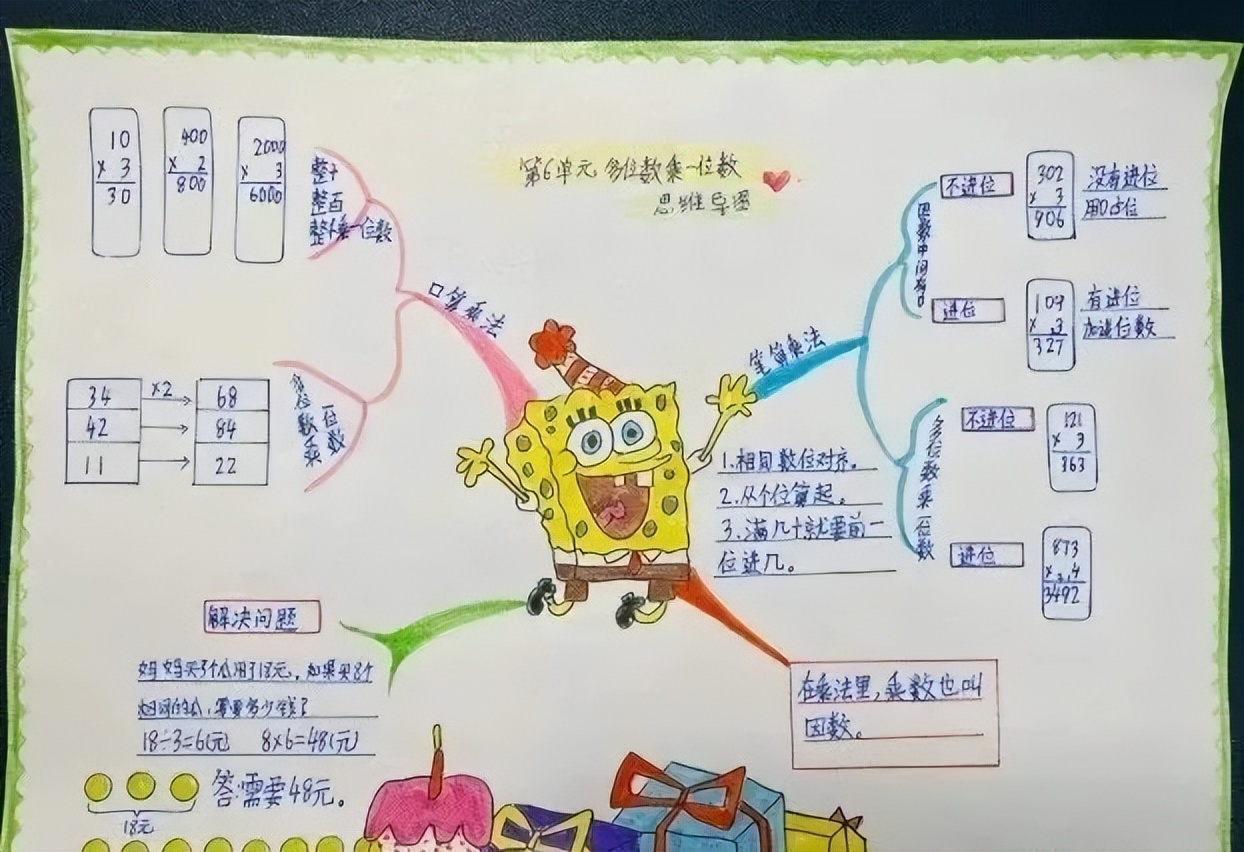 第6单元 多位数乘一位数
思维导图
口算乘法
整十
整百
整千乘一位数
10
× 3
30
400
× 2
800
2000
× 3
6000
位数乘
一位数
34 ×2 68
42 84
11 22
笔算乘法
因数中间有0
不进位
302
× 3
906
没有进位
用0占位
进位
109
× 3
327
有进位
加进位数
多位数乘一位数
不进位
121
× 3
363
进位
873
× 4
3492
1.相同数位对齐。
2.从个位算起。
3.满几十就要前一
位进几。
解决问题
妈妈买3个瓜用了18元,如果买8个
同样的瓜,需要多少钱?
18÷3=6(元) 8×6=48(元)
答:需要48元。
18元
在乘法里,乘数也叫
因数。